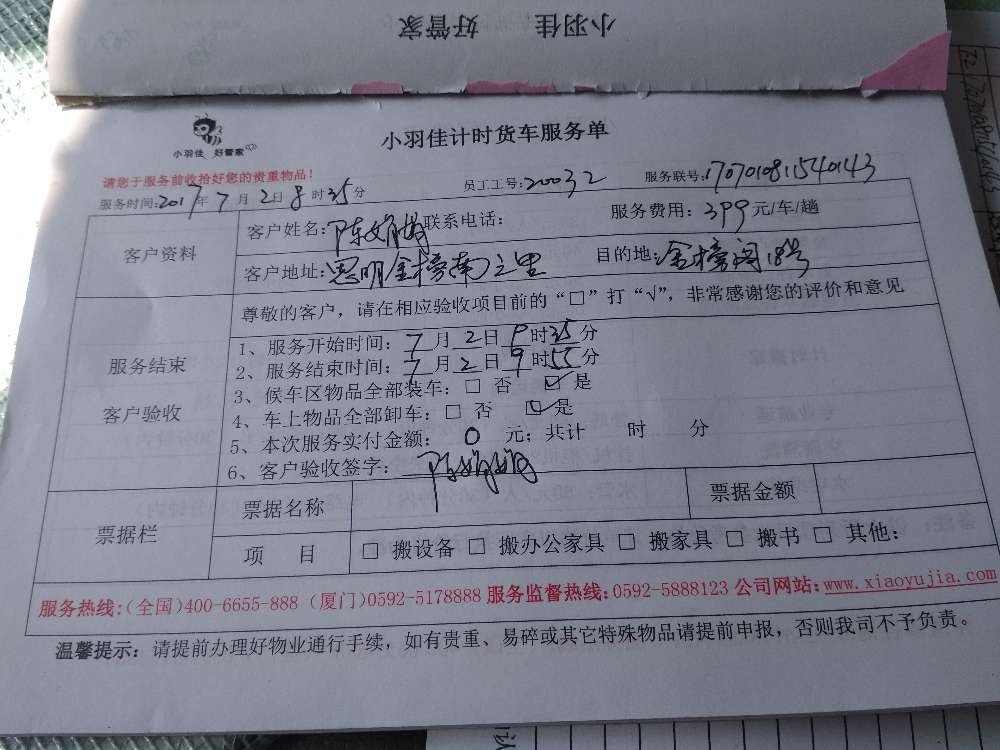 小羽佳 好管家
小羽佳 好管家
小羽佳计时货车服务单
请您于服务前收拾好您的贵重物品！
服务时间:2017年7月2日8时35分 员工工号:20032 服务联号:1707010811540143
客户资料
客户姓名:陈娟娟 联系电话: 服务费用:399元/车/趟
客户地址:思明金榜南之里 目的地:金榜阁18号
尊敬的客户，请在相应验收项目前的“□”打“√”，非常感谢您的评价和意见
服务结束
客户验收
1、服务开始时间:7月2日8时35分
2、服务结束时间:7月2日9时55分
3、候车区物品全部装车:□ 否 ☑ 是
4、车上物品全部卸车:□ 否 ☑ 是
5、本次服务实付金额: 0 元;共计 时 分
6、客户验收签字:陈娟娟
票据栏
票据名称 票据金额
项 目 □ 搬设备 □ 搬办公家具 □ 搬家具 □ 搬书 □ 其他:
服务热线:(全国)400-6655-888 (厦门)0592-5178888 服务监督热线:0592-5888123 公司网站:www.xiaoyujia.com
温馨提示：请提前办理好物业通行手续，如有贵重、易碎或其它特殊物品请提前申报，否则我司不予负责。